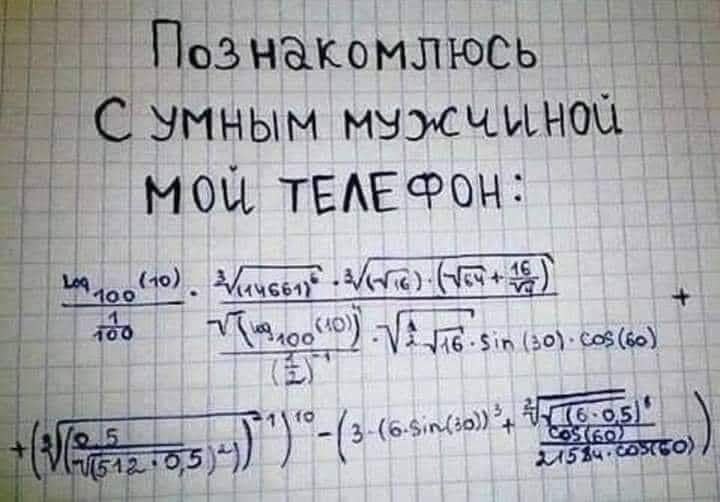 Познакомлюсь
с умным мужчиной
мой телефон:
log₁₀₀(10) / (1/100) · ∛(14661)⁶ · ∛((√16)·(√64 + 16/√4)) / (√(log₁₀₀(10)) / (1/2)⁻¹ · √(½√16 · sin(30) · cos(60))) +
+ (∛((0,5 / √(512·0,5)²))⁻¹)¹⁰ − (3·(6·sin(30))³ + ∛√(6·0,5)⁶ / cos(60) / 21584·cos(60))